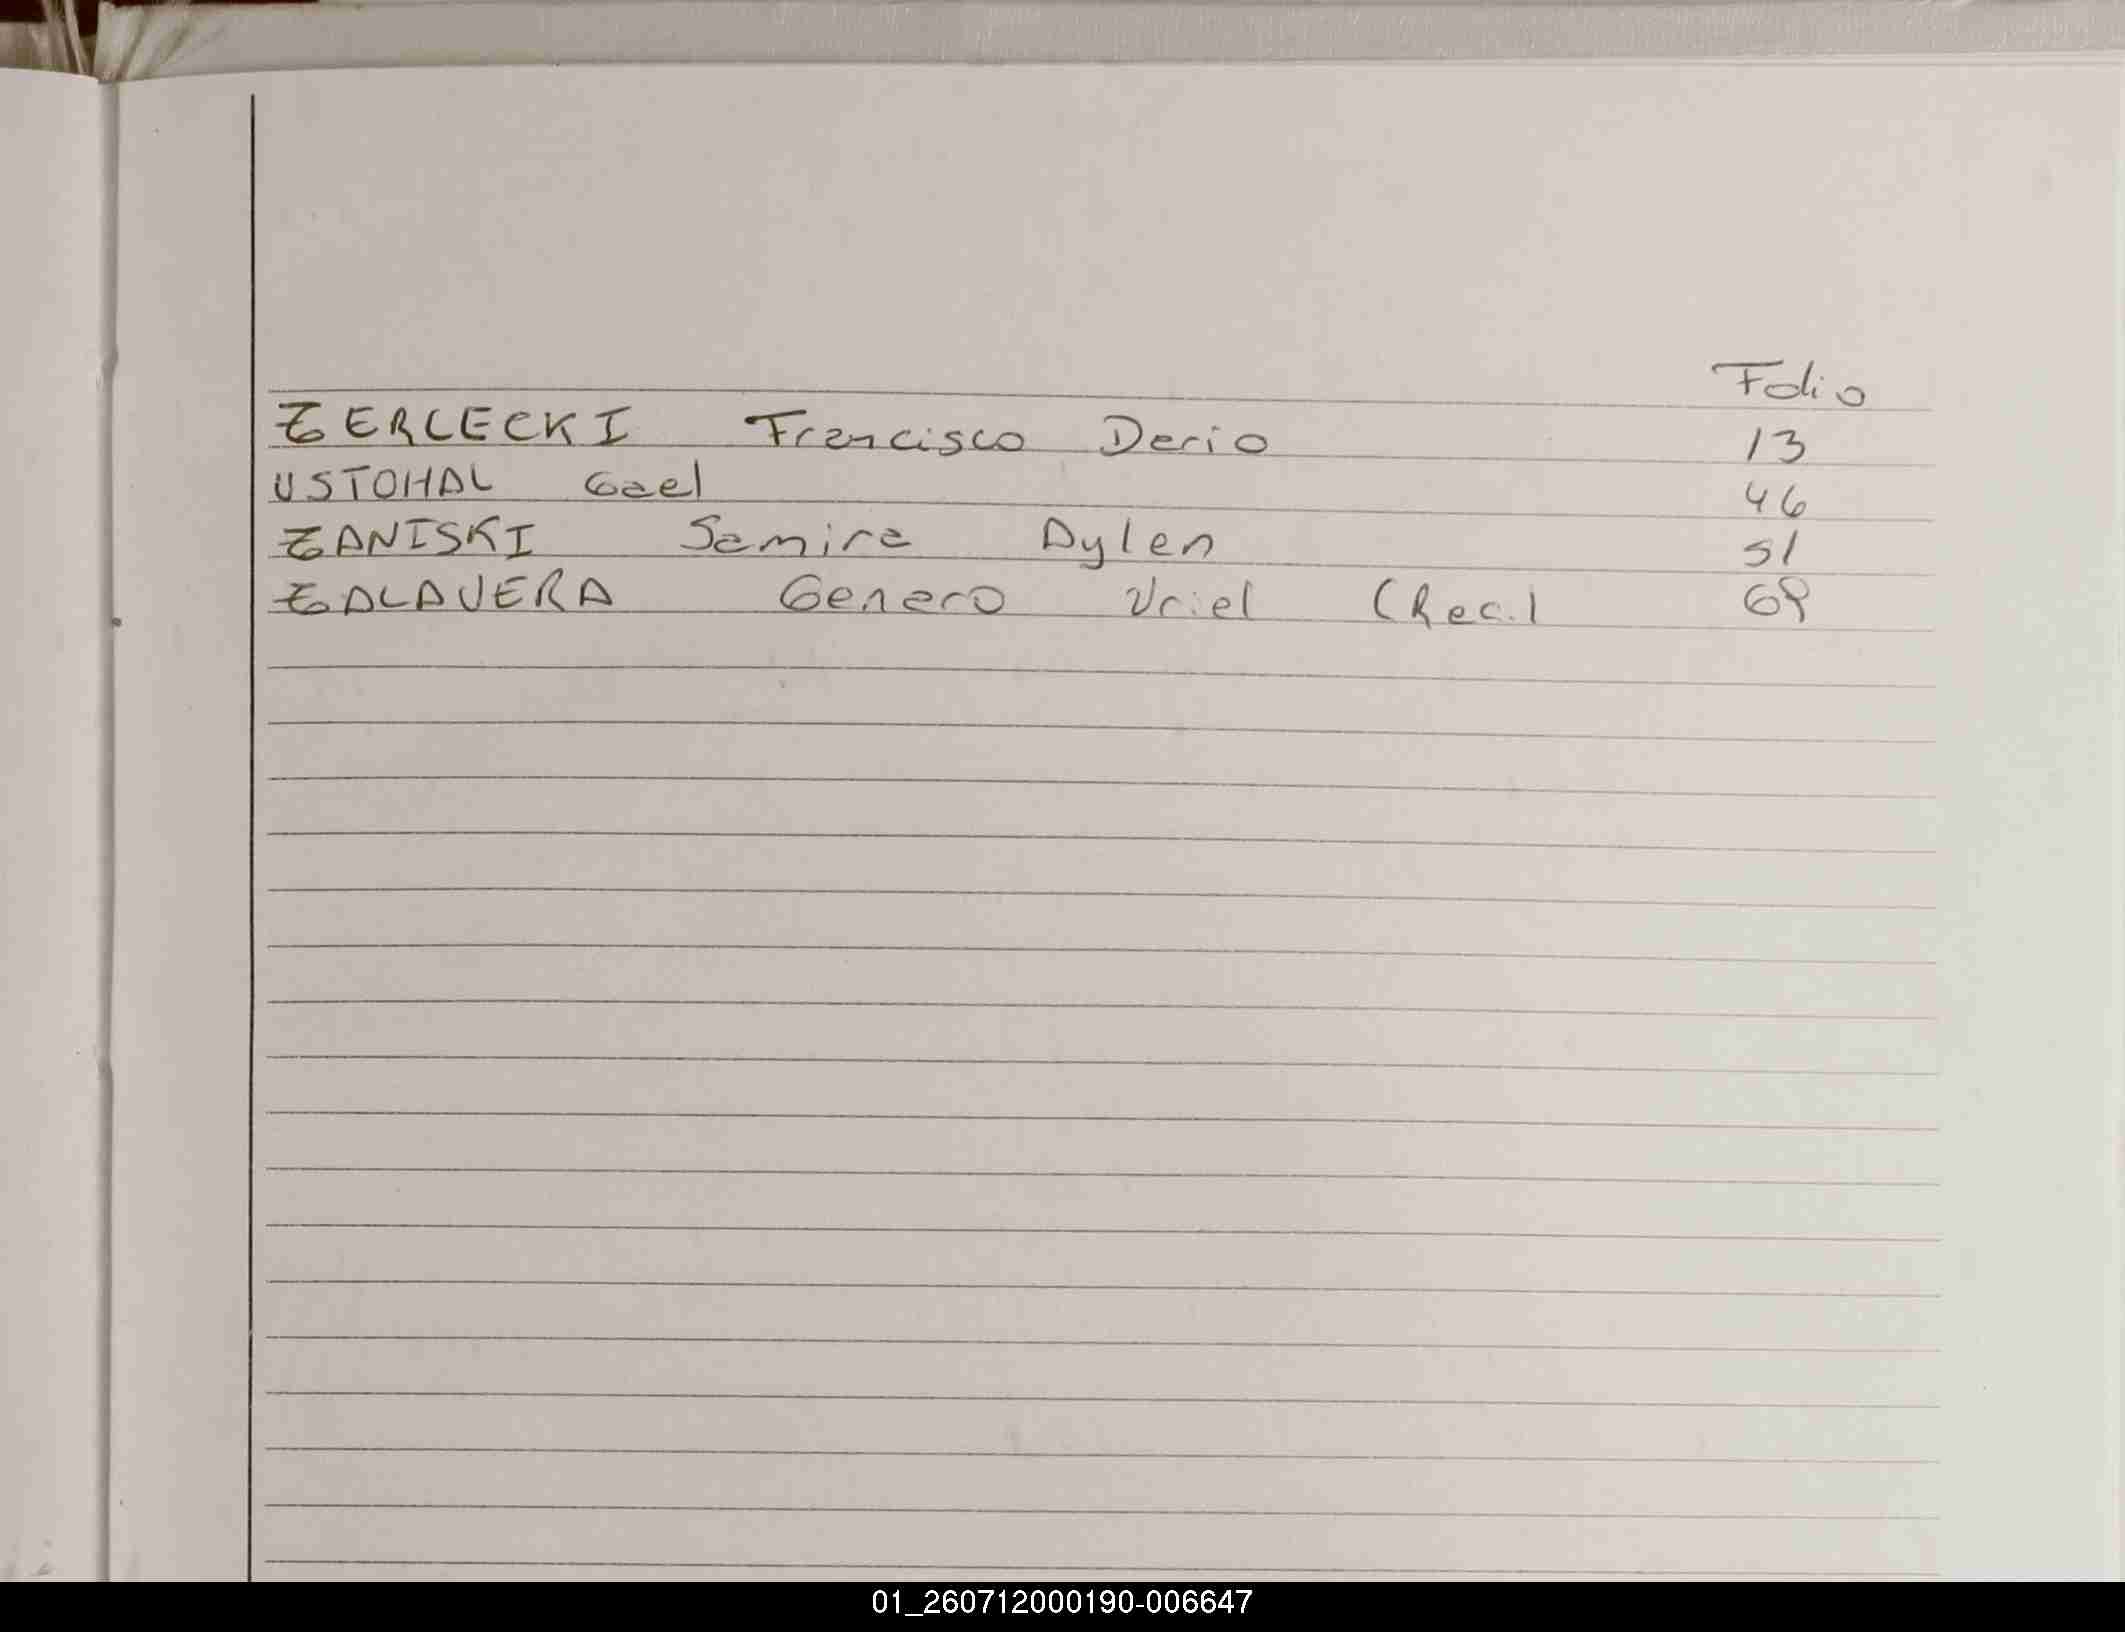 Folio
ZERLECKI Francisco Dario 13
USTOHAL Gael 46
ZANISKI Samira Aylen 51
ZALAVERA Genaro Uriel (Rec.) 69
01_260712000190-006647